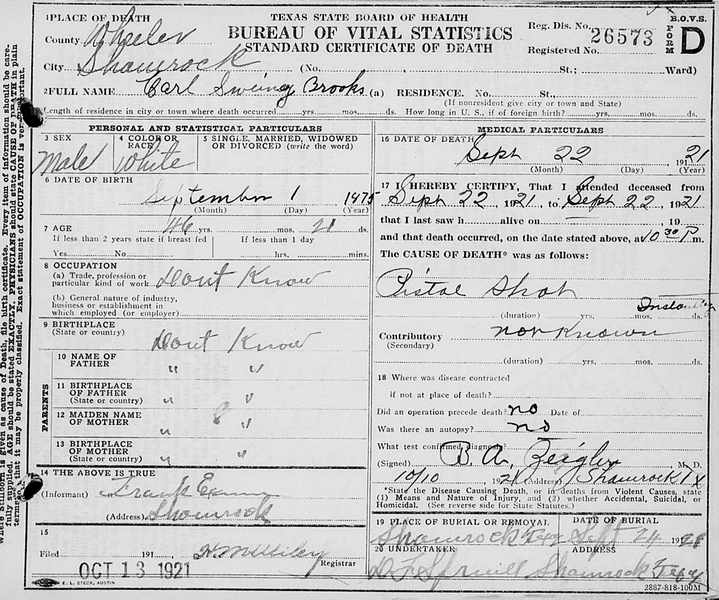 1 PLACE OF DEATH
TEXAS STATE BOARD OF HEALTH
BUREAU OF VITAL STATISTICS
STANDARD CERTIFICATE OF DEATH
Reg. Dis. No. 26573
Registered No.
B.O.V.S.
FORM D
County Wheeler
City Shamrock (No. St.; Ward)
2 FULL NAME Carl Swing Brooks (a) RESIDENCE. No. St.,
(If nonresident give city or town and State)
Length of residence in city or town where death occurred yrs. mos. ds. How long in U. S., if of foreign birth? yrs. mos. ds.
PERSONAL AND STATISTICAL PARTICULARS
3 SEX
Male
4 COLOR OR RACE
White
5 SINGLE, MARRIED, WIDOWED OR DIVORCED (write the word)
6 DATE OF BIRTH
September 1 1875
(Month) (Day) (Year)
7 AGE 46 yrs. mos. 21 ds.
If less than 2 years state if breast fed If less than 1 day
Yes No hrs. mins.
8 OCCUPATION
(a) Trade, profession or particular kind of work Dont Know
(b) General nature of industry, business or establishment in which employed (or employer)
9 BIRTHPLACE
(State or country) Dont Know
PARENTS
10 NAME OF FATHER " "
11 BIRTHPLACE OF FATHER (State or country) " "
12 MAIDEN NAME OF MOTHER
13 BIRTHPLACE OF MOTHER (State or country) " "
14 THE ABOVE IS TRUE
(Informant) Frank
(Address) Shamrock
15
Filed 191
Registrar
OCT 13 1921
E. L. STECK, AUSTIN
MEDICAL PARTICULARS
16 DATE OF DEATH
Sept 22 1921
(Month) (Day) (Year)
17 I HEREBY CERTIFY, That I attended deceased from
Sept 22 1921, to Sept 22 1921
that I last saw h alive on 19
and that death occurred, on the date stated above, at 10 30 P m.
The CAUSE OF DEATH* was as follows:
Pistol Shot
(duration) yrs. mos. ds.
Contributory not Known
(Secondary)
(duration) yrs. mos. ds.
18 Where was disease contracted
if not at place of death?
Did an operation precede death? no Date of
Was there an autopsy? no
What test confirmed diagnosis?
(Signed) B. A. Zeigler M. D.
10/10 1921 (Address) Shamrock Tx
*State the Disease Causing Death, or in deaths from Violent Causes, state (1) Means and Nature of Injury, and (2) whether Accidental, Suicidal, or Homicidal. (See reverse side for State Statute.)
19 PLACE OF BURIAL OR REMOVAL DATE OF BURIAL
Shamrock Tex Sept 24
20 UNDERTAKER ADDRESS
Spruill Shamrock Texas
2887-818-100M